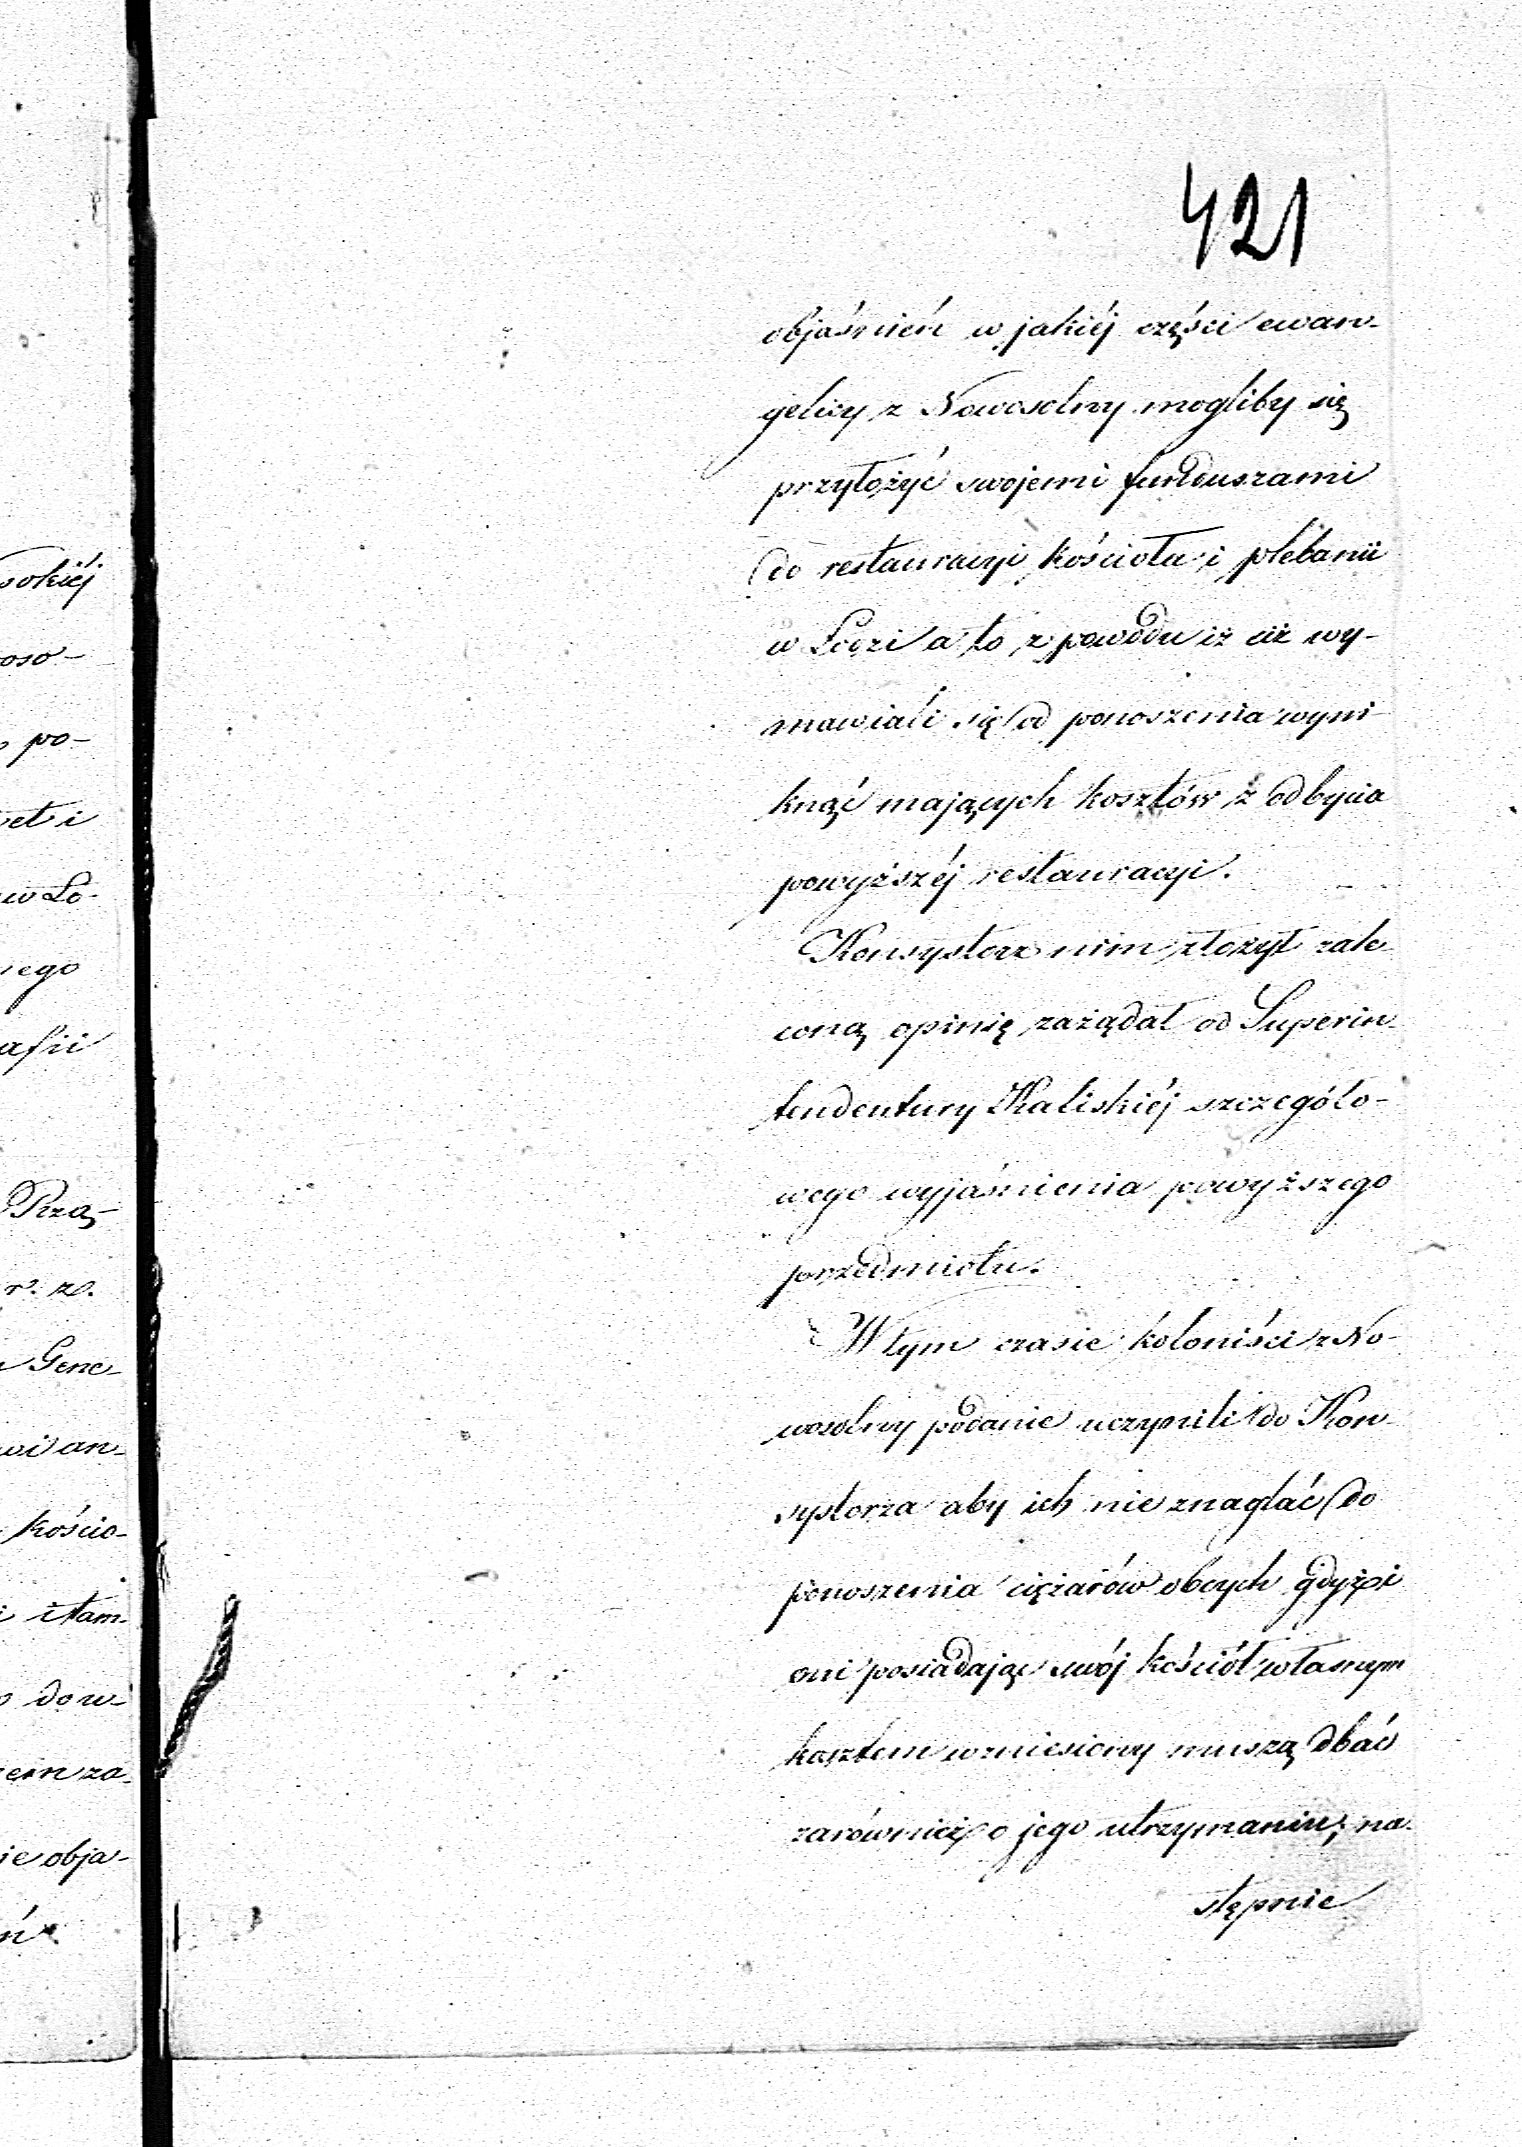 421
objaśnień w jakiéj części ewan-
gelicy z Nowosolny mogliby się
przyłożyć swojemi funduszami
do restauracyi kościoła i plebanii
w Łodzi a to z powodu iż ciż wy-
mawiali się od ponoszenia wyni-
knąć mających kosztów z odbycia
powyższéj restauracyi.
Konsystorz nim złożył zale-
coną opinię zażądał od Superin-
tendentury Kaliskiéj szczegóło-
wego wyjaśnienia powyższego
przedmiotu.
W tym czasie koloniści z No-
wosolny podanie uczynili do Kon-
systorza aby ich nie znaglać do
ponoszenia ciężarów obcych gdyż i
oni posiadając swój kościół własnym
kosztem wzniesiony muszą dbać
zarównież o jego utrzymaniu, na-
stępnie
sokiéj
oso-
po-
et i
w Ło-
nego
afii
Rzą-
r. z.
Gene-
wi an-
kościo-
i tam-
do w-
za-
ie obja-
ń